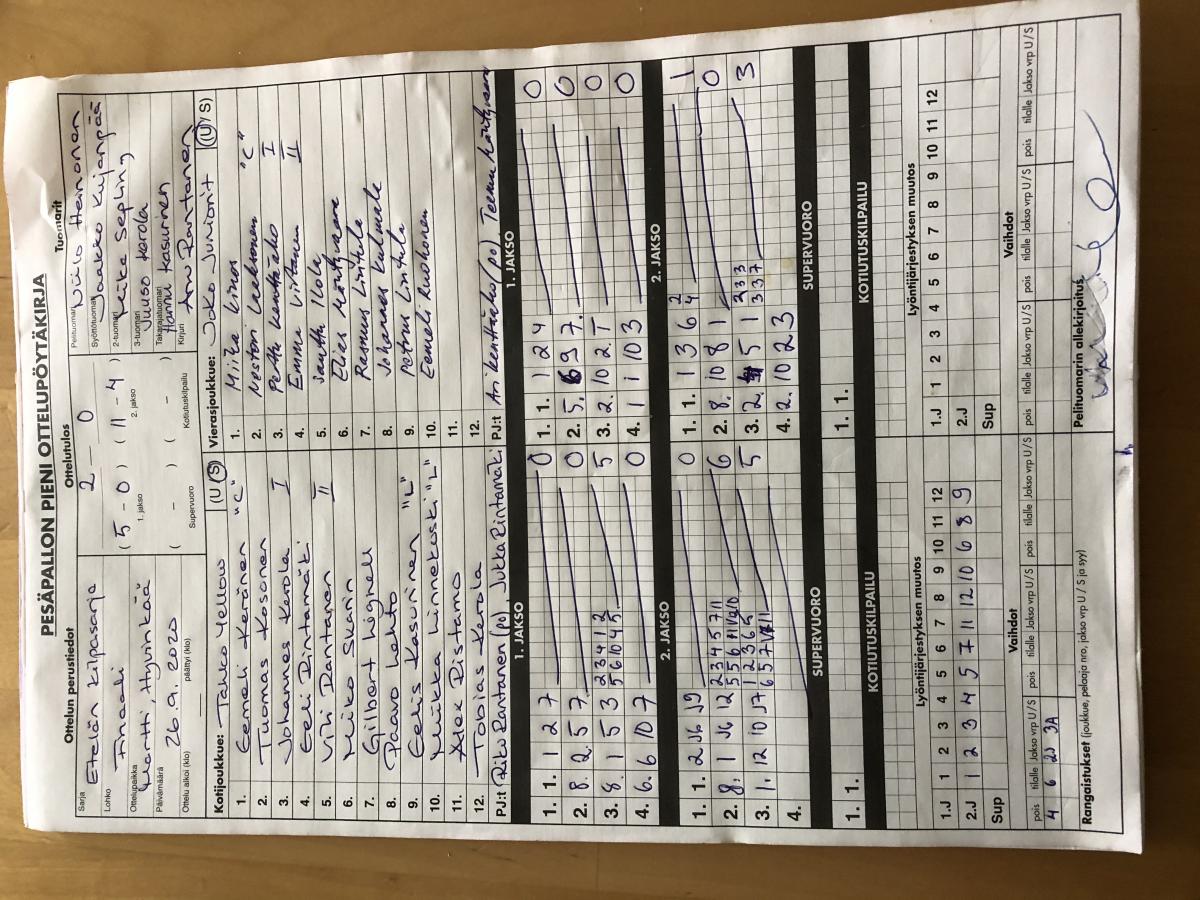 PESÄPALLON PIENI OTTELUPÖYTÄKIRJA
Ottelun perustiedot
Sarja Etelän kilpasarja
Lohko Finaali
Ottelupaikka Martti, Hyvinkää
Päivämäärä 26.9.2020
Ottelu alkoi (klo) päättyi (klo)
Ottelutulos
2 - 0
( 5 - 0 ) ( 11 - 4 )
1. jakso 2. jakso
( - ) ( - )
Supervuoro Kotiutuskilpailu
Tuomarit
Pelituomari Niilo Heinonen
Syöttötuomari Jaakko Kujanpää
2-tuomari Miika Sepling
3-tuomari Juuso Kerola
Takarajatuomari Hannu Kasurinen
Kirjuri Anu Rantanen
Kotijoukkue: Tahko Yellow (U/S)
1. Eemeli Keränen "C"
2. Tuomas Kosonen
3. Johannes Kerola I
4. Eeli Rintamäki
5. Vili Rantanen II
6. Miko Skarin
7. Gilbert Lignell
8. Paavo Lehto
9. Eelis Kasurinen "L"
10. Miikka Linnekoski "L"
11. Alex Ristamo
12. Tobias Kerola
PJ:t Riku Rantanen (po), Jukka Rintamäki
Vierasjoukkue: Joko Juniorit (U/S)
1. Miika Linos
2. Nestori Laaksonen "C"
3. Perttu I
4. Emma Viitanen II
5. Santtu Ilola
6. Elias Mäntyvaara
7. Rasmus Lintula
8. Johannes Kulmala
9. Petrus Lintula
10. Eemeli Ruohonen
11.
12.
PJ:t Ari (po), Teemu
1. JAKSO
1. 1. 1 2 7 0
2. 8. 2 5 7 0
2 3 4 1 2
3. 8. 1 5 3 5 6 10 4 5 5
4. 6. 6 10 7 0
2. JAKSO
1. 1. 2 J6 J9 0
2 3 4 5 7 11
2. 8. 1 J6 12 6
1 2 3 6 5
3. 1. 12 10 J7 5
4.
SUPERVUORO
1. 1.
KOTIUTUSKILPAILU
1. JAKSO
1. 1. 1 2 4 0
2. 5. 6 9 7. 0
3. 2. 10 2. T 0
4. 1 1 10 3 0
2. JAKSO
2
1. 1. 1 3 6 4 1
2. 8. 10 8 1 0
2 3 3
3. 2. 5 1 3 3 7 3
4. 2. 10 2 3
SUPERVUORO
1. 1.
KOTIUTUSKILPAILU
Lyöntijärjestyksen muutos
1.J 1 2 3 4 5 6 7 8 9 10 11 12
2.J 1 2 3 4 5 7 11 12 10 6 8 9
Sup
Vaihdot
pois tilalle Jakso vrp U/S pois tilalle Jakso vrp U/S pois tilalle Jakso vrp U/S
4 6 2J 3A
Rangaistukset (joukkue, pelaaja nro, jakso vrp U / S ja syy)
Lyöntijärjestyksen muutos
1.J 1 2 3 4 5 6 7 8 9 10 11 12
2.J
Sup
Vaihdot
pois tilalle Jakso vrp U/S pois tilalle Jakso vrp U/S pois tilalle Jakso vrp U/S
Pelituomarin allekirjoitus